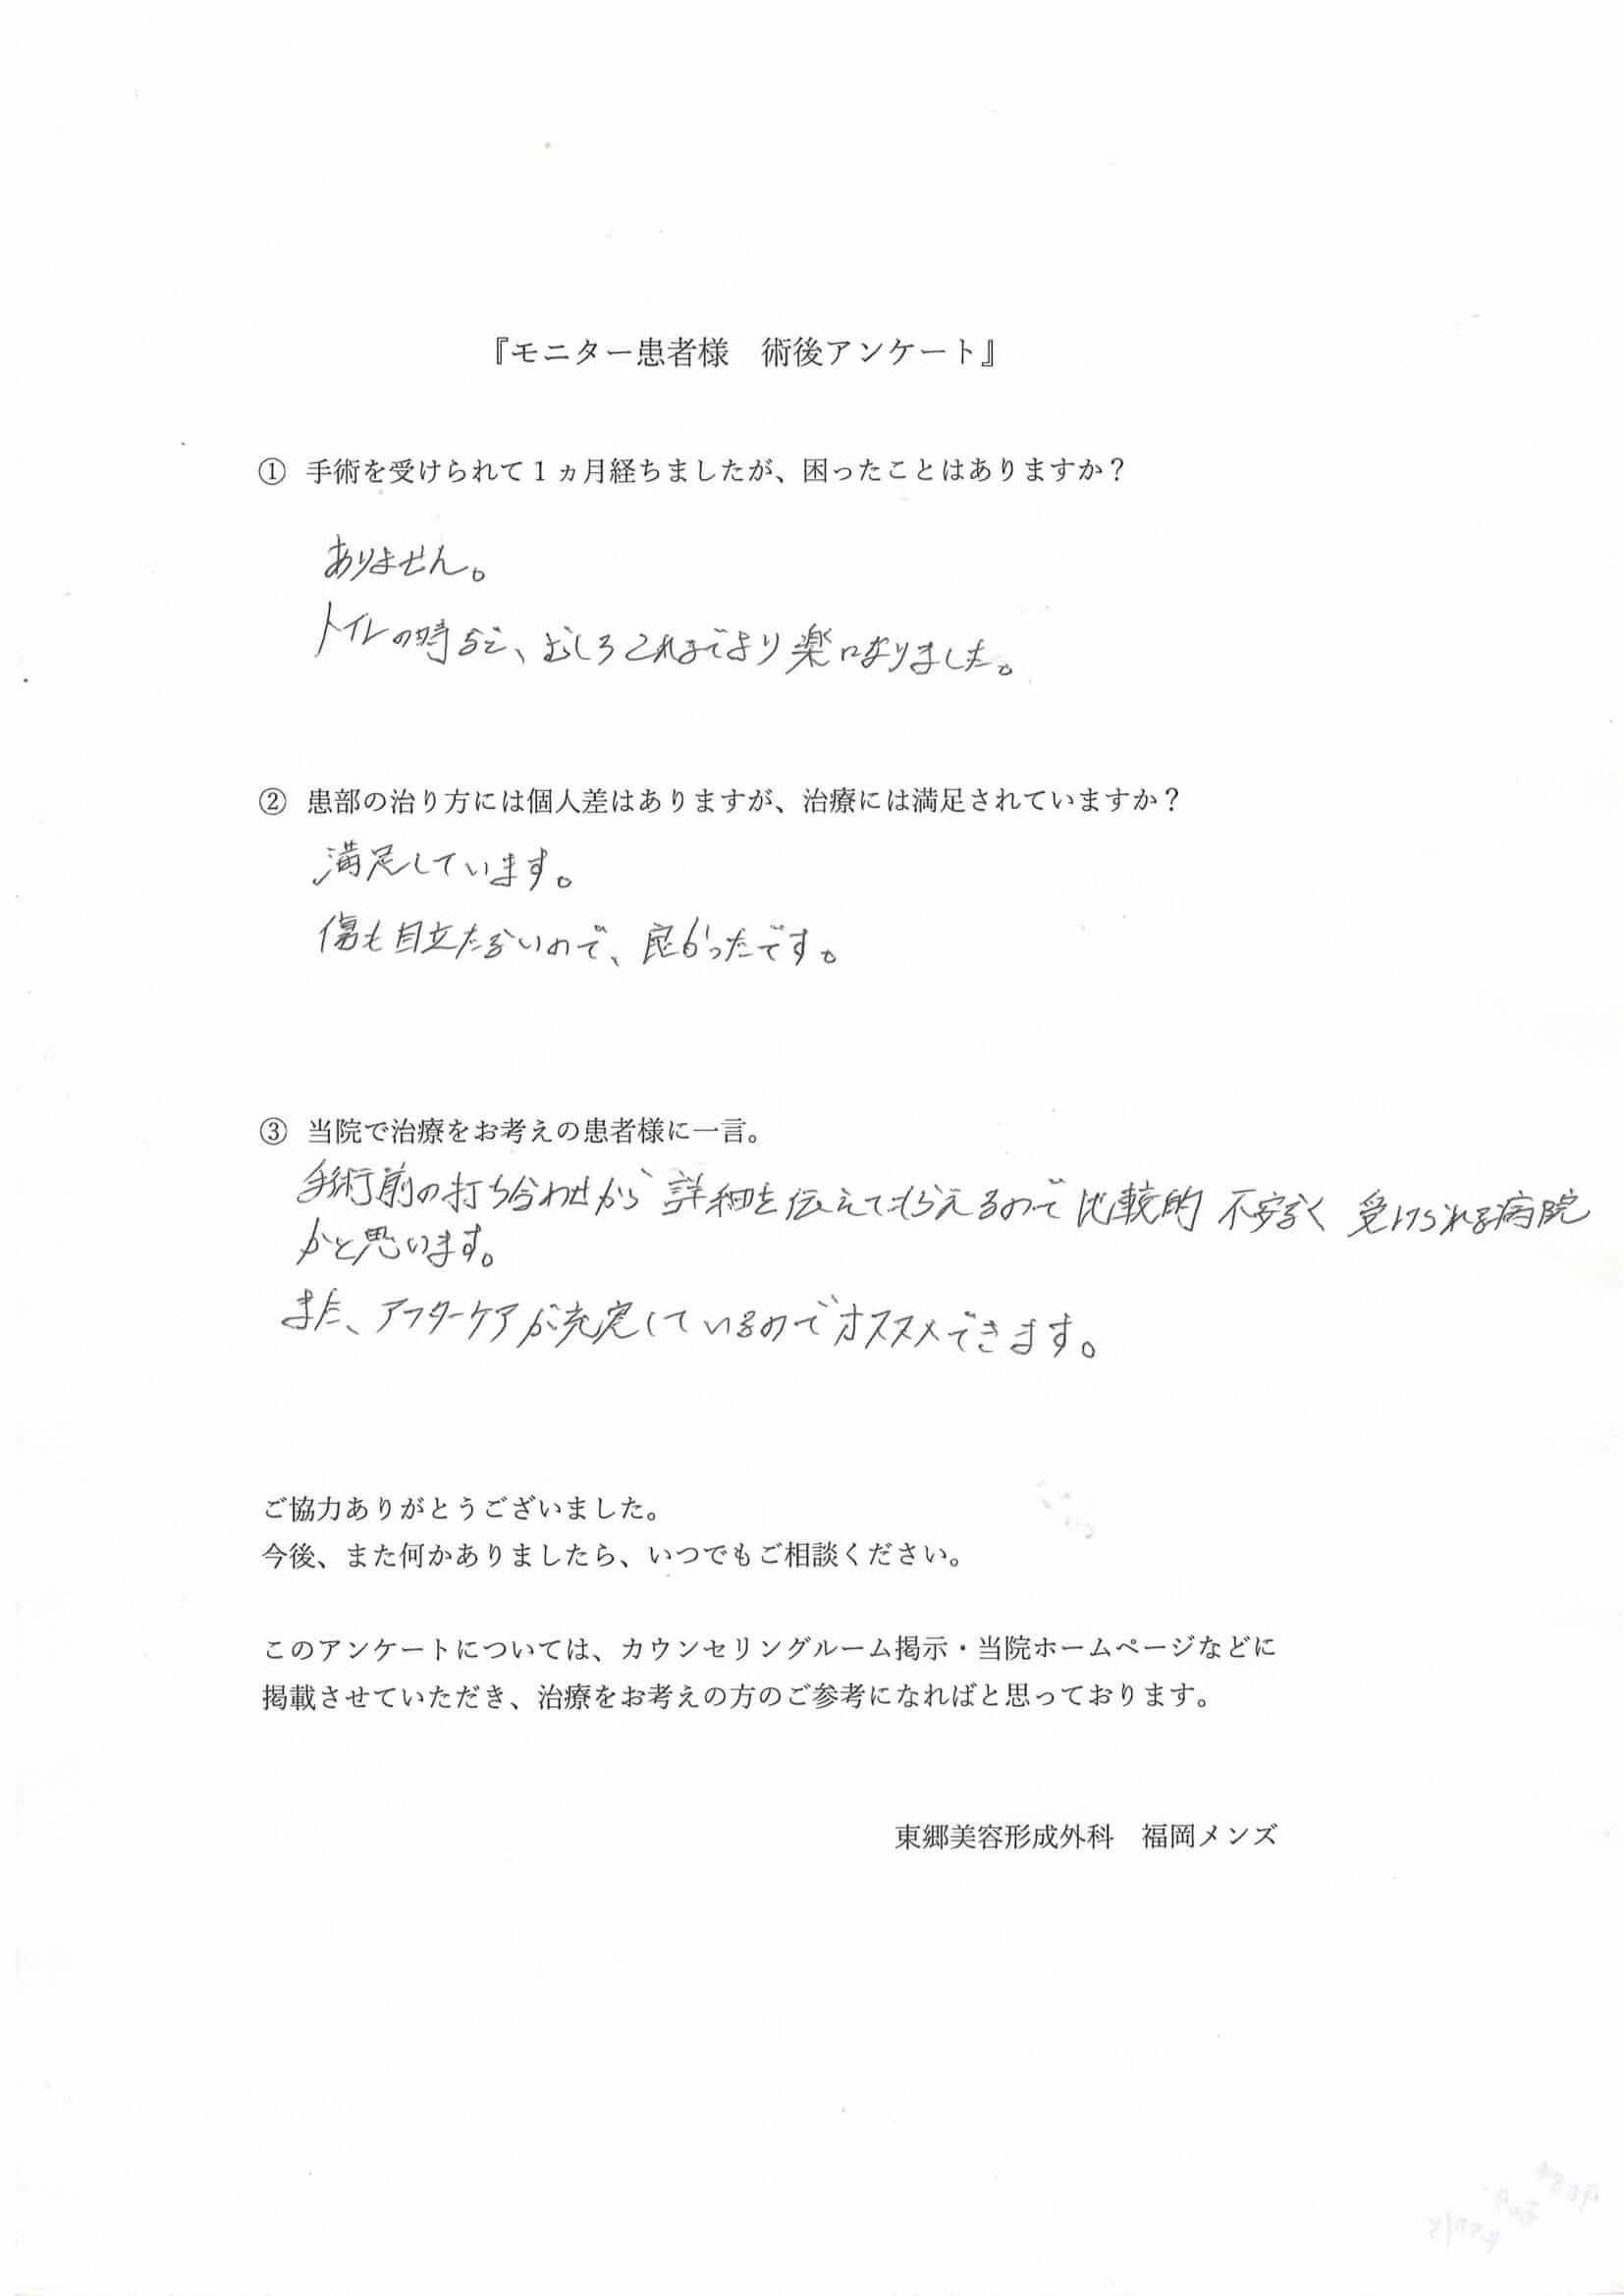 『モニター患者様　術後アンケート』
① 手術を受けられて１ヵ月経ちましたが、困ったことはありますか？
ありません。
トイレの時など、むしろこれまでより楽になりました。
② 患部の治り方には個人差はありますが、治療には満足されていますか？
満足しています。
傷も目立たないので、良かったです。
③ 当院で治療をお考えの患者様に一言。
手術前の打ち合わせから詳細を伝えてもらえるので比較的 不安なく 受けられる病院
かと思います。
また、アフターケアが充実しているのでオススメできます。
ご協力ありがとうございました。
今後、また何かありましたら、いつでもご相談ください。
このアンケートについては、カウンセリングルーム掲示・当院ホームページなどに
掲載させていただき、治療をお考えの方のご参考になればと思っております。
東郷美容形成外科　福岡メンズ